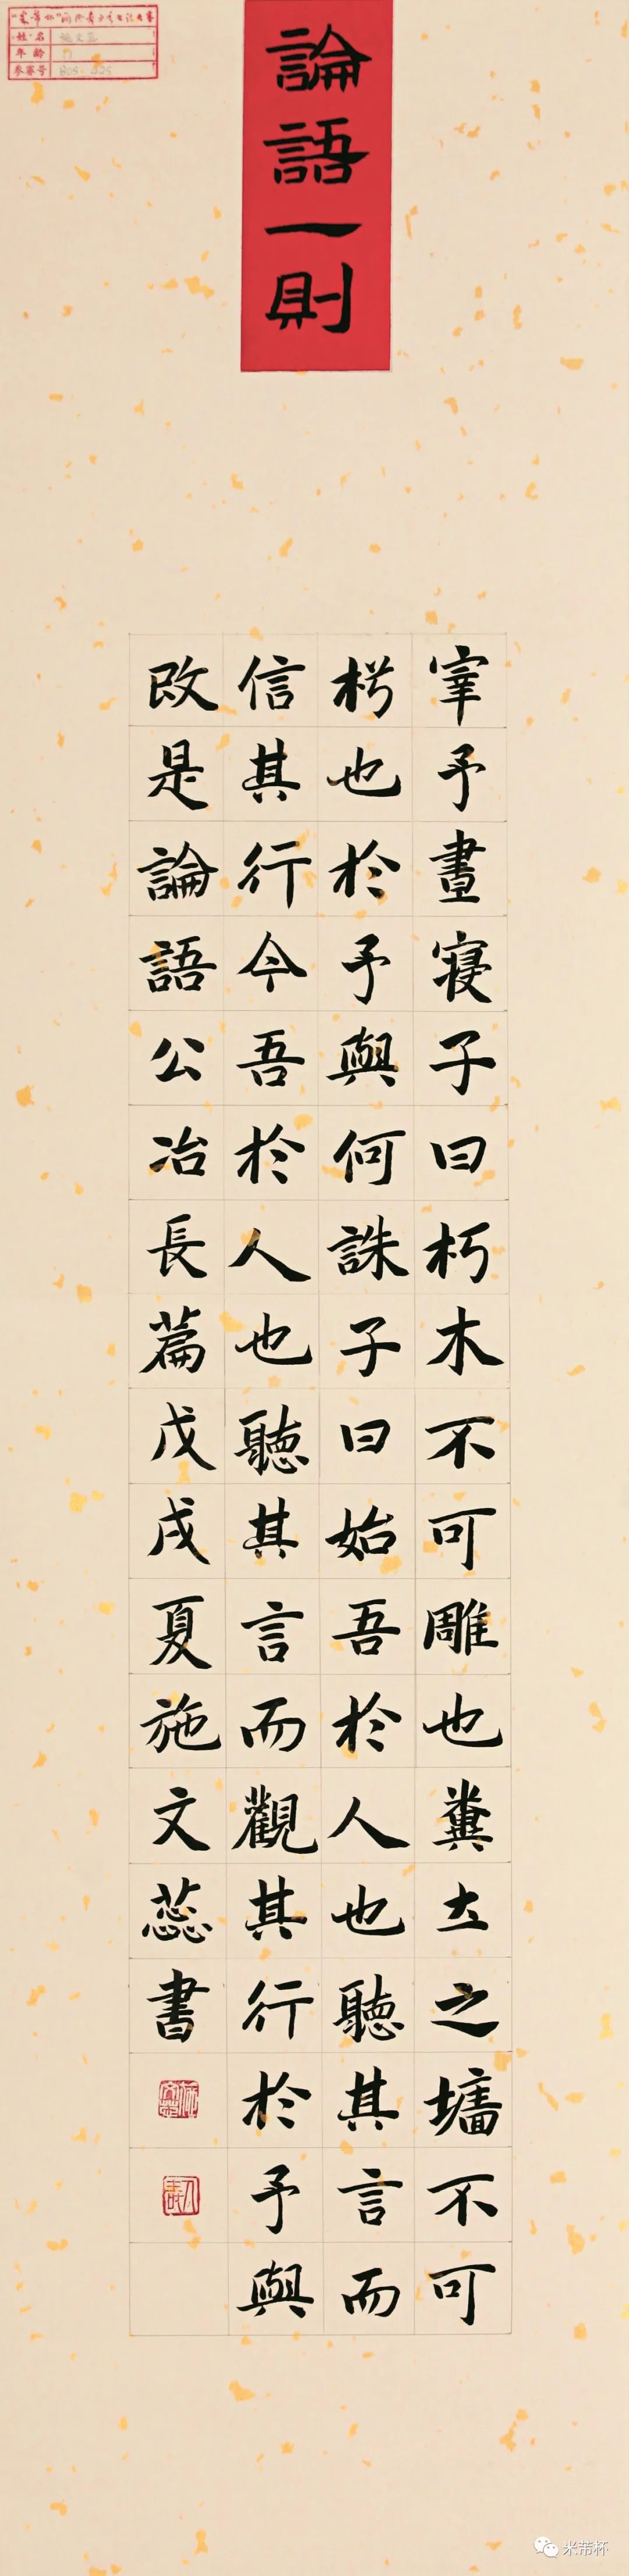 姓名
年齡
論語一則
宰予晝寢子曰朽木不可雕也糞土之墻不可
杇也於予與何誅子曰始吾於人也聽其言而
信其行今吾於人也聽其言而觀其行於予與
改是論語公冶長篇戊戌夏施文蕊書
米芾杯